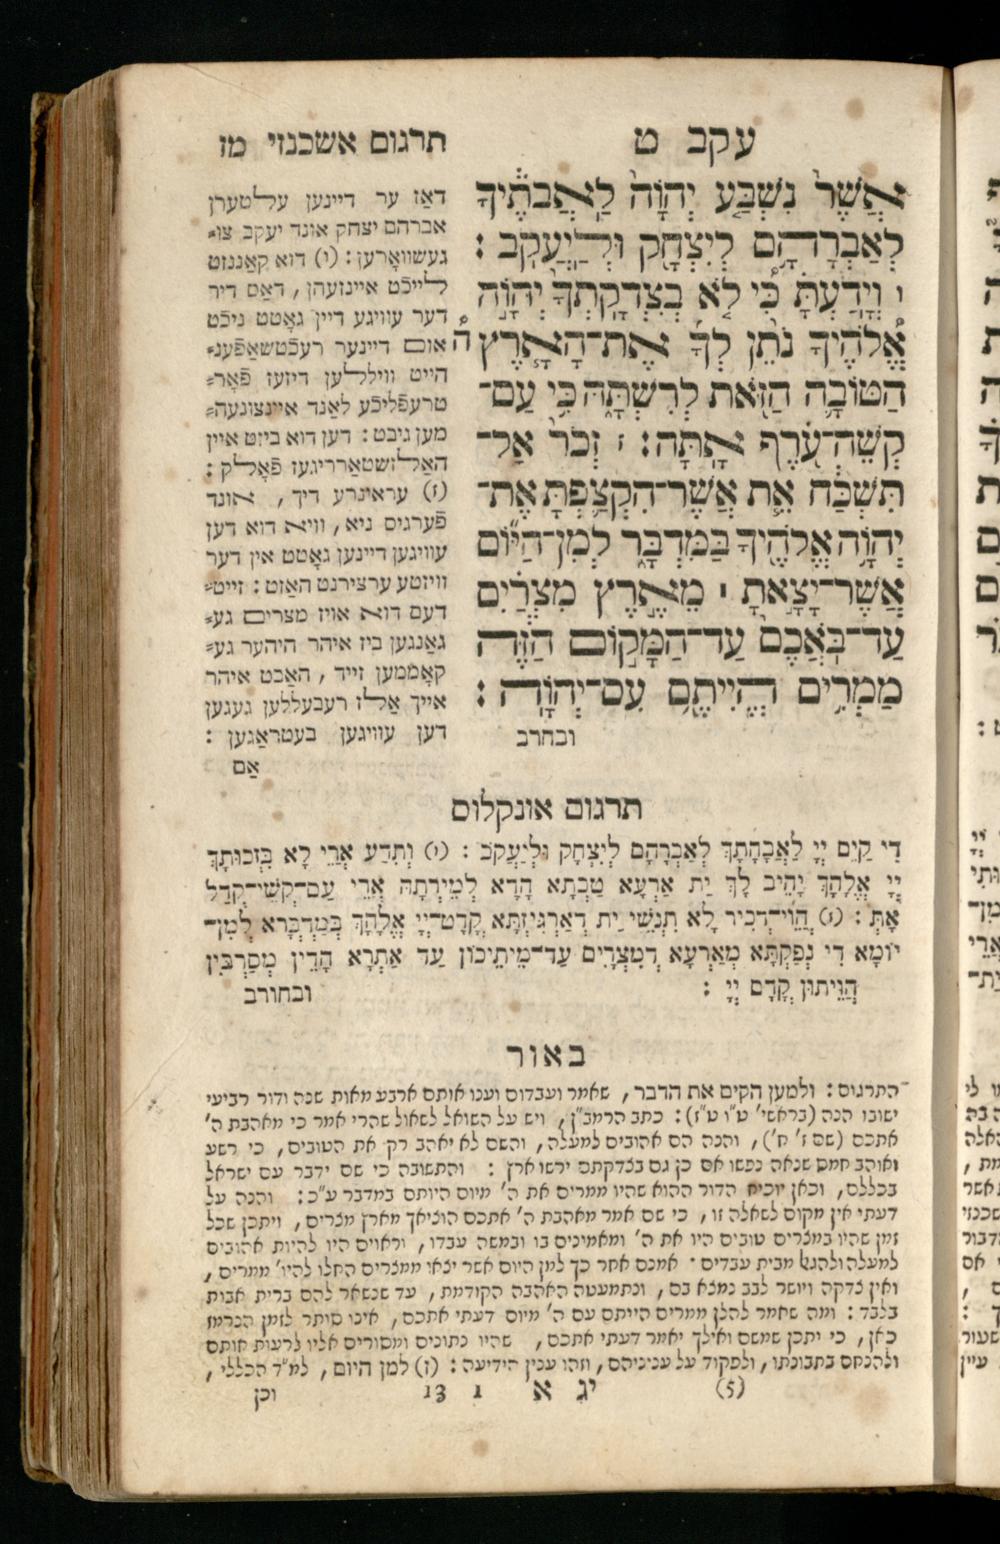 עקב ט
תרגום אשכנזי מז
אֲשֶׁר נִשְׁבַּע יְהוָה לַאֲבֹתֶיךָ
לְאַבְרָהָם לְיִצְחָק וּלְיַעֲקֹב :
ו וְיָדַעְתָּ כִּי לֹא בְצִדְקָתְךָ יְהוָה
אֱלֹהֶיךָ נֹתֵן לְךָ אֶת־הָאָרֶץ ה
הַטּוֹבָה הַזֹּאת לְרִשְׁתָּהּ כִּי עַם־
קְשֵׁה־עֹרֶף אָתָּה : ז זְכֹר אַל־
תִּשְׁכַּח אֵת אֲשֶׁר־הִקְצַפְתָּ אֶת־
יְהוָה אֱלֹהֶיךָ בַּמִּדְבָּר לְמִן־הַיּוֹם
אֲשֶׁר־יָצָאתָ ׀ מֵאֶרֶץ מִצְרַיִם
עַד־בֹּאֲכֶם עַד־הַמָּקוֹם הַזֶּה
מַמְרִים הֱיִיתֶם עִם־יְהוָה :
ובחרב
דאַז ער דיינען עלטערן
אברהם יצחק אונד יעקב צו⸗
געשוואָרען : (ו) דוא קאַננזט
לייכֿט איינזעהן , דאַם דיר
דער עוויגע דיין גאָטט ניכֿט
אום דיינער רעכֿטשאַפֿענ⸗
הייט וויללען דיזעז פֿאָר⸗
טרעפֿליכֿע לאַנד איינצונעה⸗
מען גיבט : דען דוא ביזט איין
האַלזשטאַרריגעז פֿאָלק :
(ז) עראינרע דיך , אונד
פֿערגיס ניא , וויא דוא דען
עוויגען דיינען גאָטט אין דער
וויזטע ערצירנט האַזט : זייט⸗
דעם דוא אויז מצרים גע⸗
גאַנגען ביז איהר היהער גע⸗
קאָממען זייד , האַבט איהר
אייך אַלז רעבעללען געגען
דען עוויגען בעטראַגען :
אַם
תרגום אונקלוס
דִי קַיִּם יְיָ לַאֲבָהָתָךְ לְאַבְרָהָם לְיִצְחָק וּלְיַעֲקֹב : (ו) וְתִדַּע אֲרֵי לָא בְּזָכוּתָךְ
יְיָ אֱלָהָךְ יָהֵיב לָךְ יַת אַרְעָא טַבְתָא הָדָא לְמֵירְתַהּ אֲרֵי עַם־קְשֵׁי־קְדַל
אָתְּ : (ז) הֱוֵי־דְכִיר לָא תִנְשֵׁי יַת דְּאַרְגֵּיזְתָּא קֳדָם־יְיָ אֱלָהָךְ בְּמַדְבְּרָא לְמִן־
יוֹמָא דִי נְפַקְתָּא מֵאַרְעָא דְמִצְרַיִם עַד־מֵיתֵיכוֹן עַד אַתְרָא הָדֵין מְסָרְבִין
הֲוֵיתוּן קֳדָם יְיָ :
ובחורב
באור
התרגום : ולמען הקים את הדבר , שאמר ועבדום וענו אותם ארבע מאות שנה ודור רביעי
ישובו הנה (בראשי' ט"ו ט"ז) : כתב הרמב"ן , ויש על השואל לשאול שהרי אמר כי מאהבת ה'
אתכם (שם ז' ח') , והנה הם אהובים למעלה , והשם לא יאהב רק את הטובים , כי רשע
ואוהב חמס שנאה נפשו אם כן גם בצדקתם ירשו ארץ : והתשובה כי שם ידבר עם ישראל
בכללם , וכאן יוכיח הדור ההוא שהיו ממרים את ה' מיום היותם במדבר ע"כ : והנה על
דעתי אין מקום לשאלה זו , כי שם אמר מאהבת ה' אתכם הוציאך מארץ מצרים , ויתכן שכל
זמן שהיו במצרים טובים היו את ה' ומאמינים בו ובמשה עבדו , וראוים היו להיות אהובים
למעלה ולהגאל מבית עבדים · אמנם אחר כך למן היום אשר יצאו ממצרים החלו להיו' ממרים ,
ואין צדקה ויושר לבב נמצא בם , ונתמעטה האהבה הקודמת , עד שנשאר להם ברית אבות
בלבד : ומה שאמר להלן ממרים הייתם עם ה' מיום דעתי אתכם , אינו סותר לזמן הנרמז
כאן , כי יתכן שמשם ואילך יאמר דעתי אתכם , שהיו נתונים ומסורים אליו לרעות אותם
ולהנחם בתבונתו , ולפקוד על עניניהם , וזהו ענין הידיעה : (ז) למן היום , למ"ד הכללי ,
(5) יג א 1 13 וכן